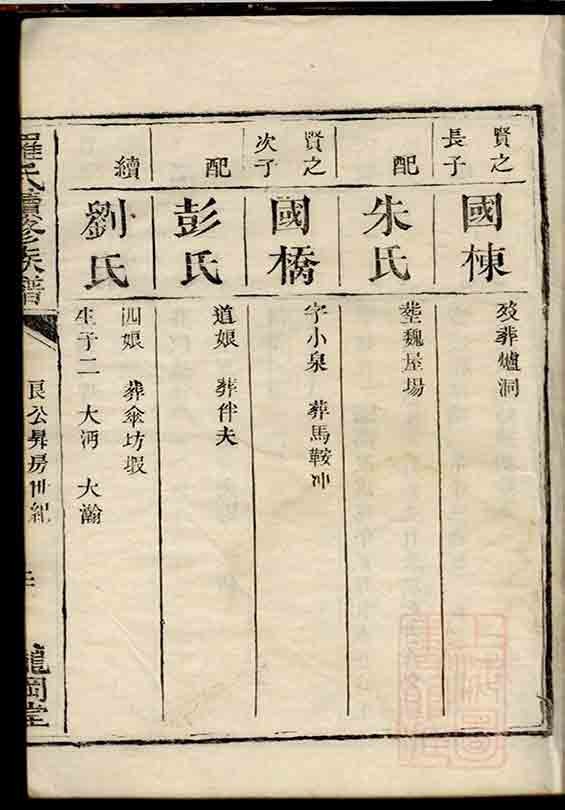 賢之
長子
國棟
歿葬爐洞
配
朱氏
塟魏屋場
賢之
次子
國橋
字小泉 葬馬鞍冲
配
彭氏
道娘 葬伴夫
續
劉氏
四娘 葬傘坊塅
生子二 大沔 大瀚
羅氏續修族譜
艮公昇房世紀
龍岡堂